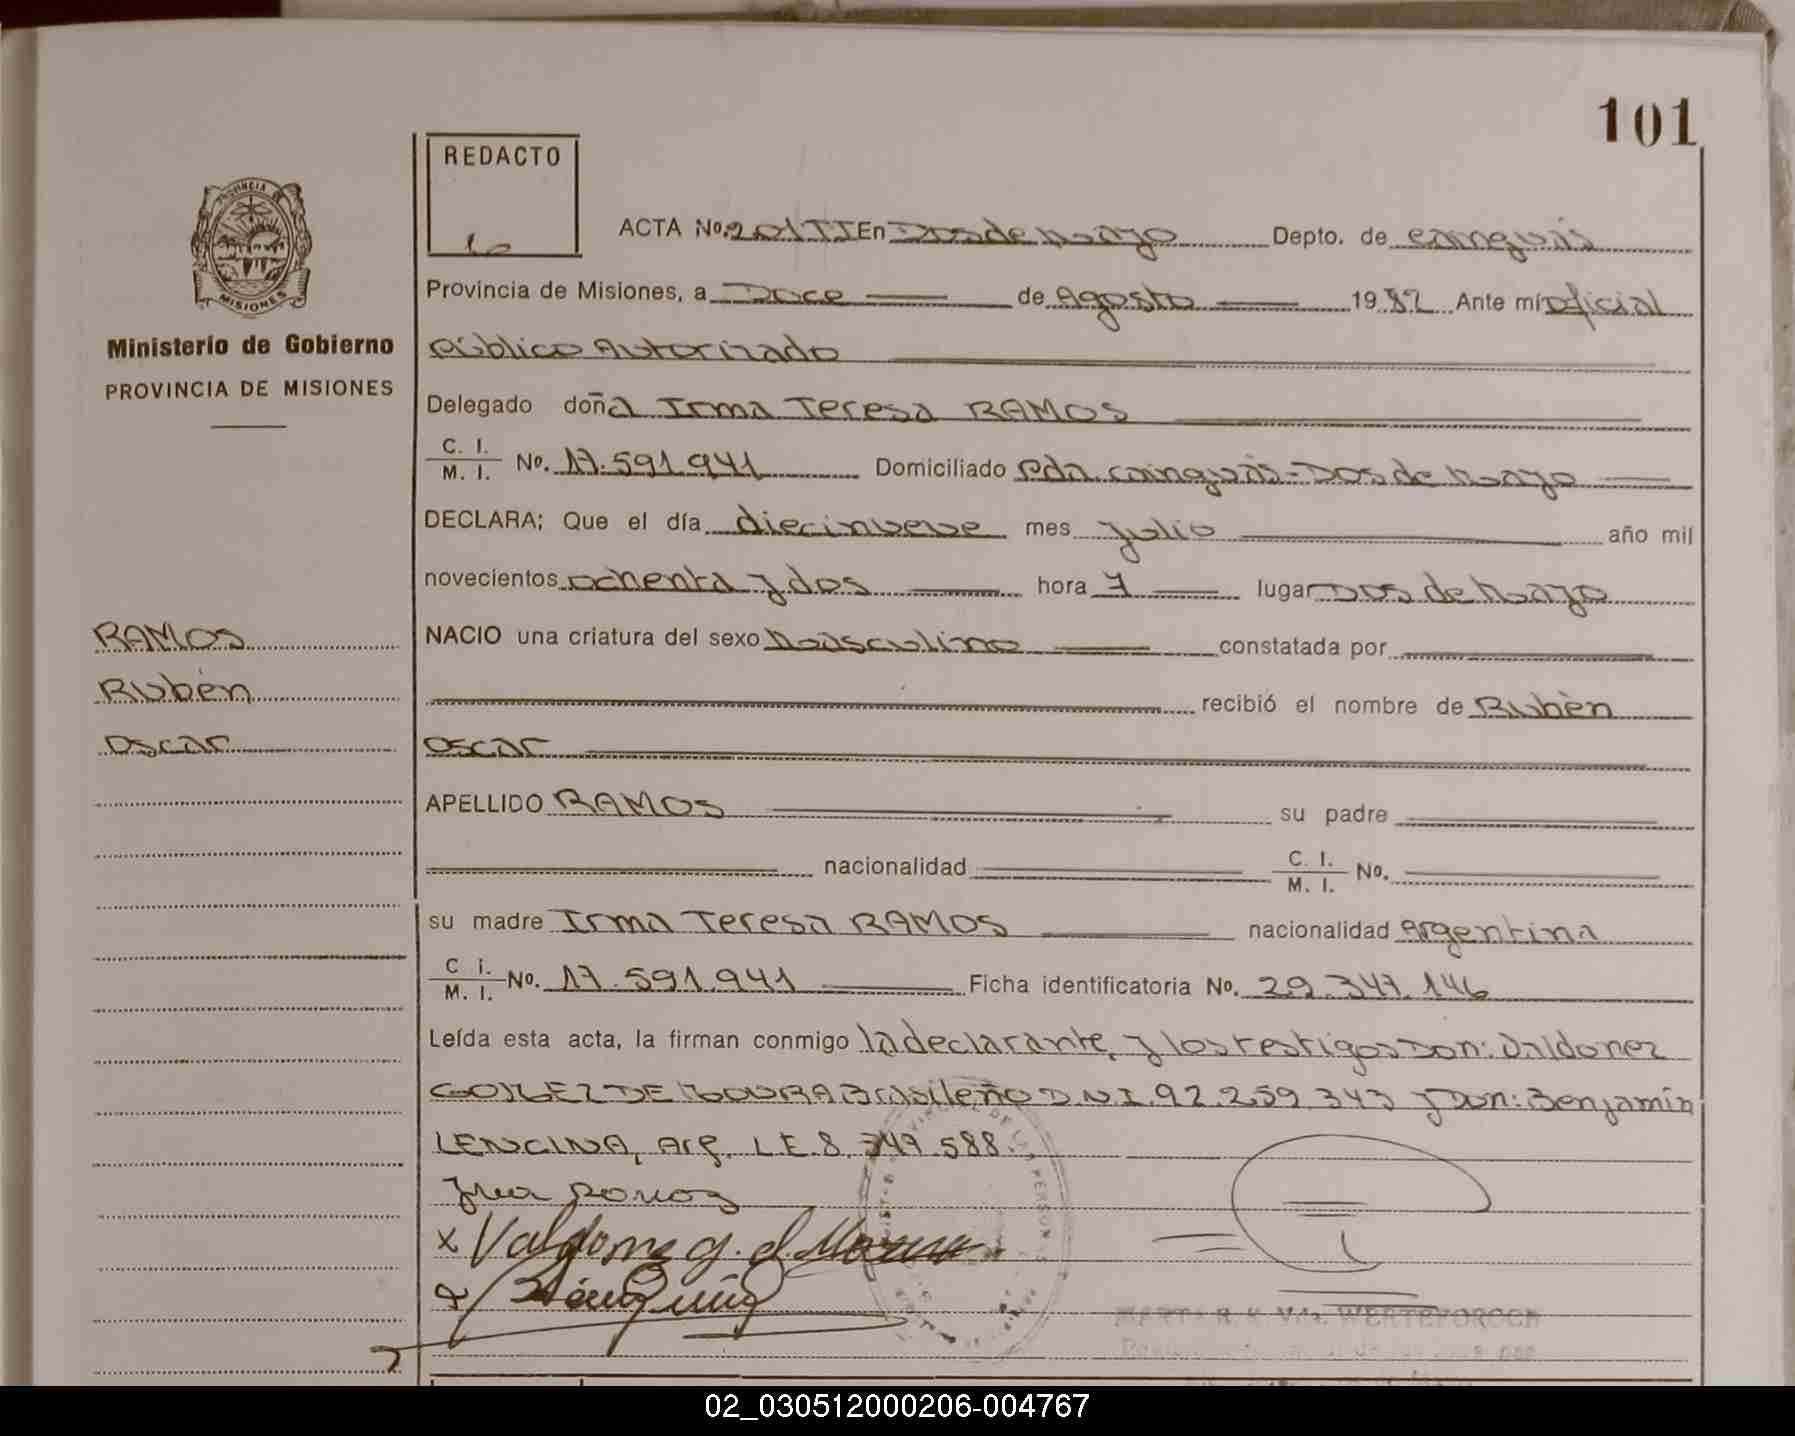 101
REDACTO
PROVINCIA DE
MISIONES
ACTA No. 201TI En Dos de Mayo Depto. de Cainguás
Provincia de Misiones, a Doce de Agosto 1982 Ante mí Oficial
Ministerio de Gobierno
Público Autorizado
PROVINCIA DE MISIONES
Delegado doña Irma Teresa RAMOS
C. I. M. I. No. 17.591.941 Domiciliado Pda. Cainguás-Dos de Mayo
DECLARA; Que el día diecinueve mes Julio año mil
novecientos ochenta y dos hora 7 lugar Dos de Mayo
RAMOS
Rubén
Oscar
NACIO una criatura del sexo Masculino constatada por
recibió el nombre de Rubén
Oscar
APELLIDO RAMOS su padre
nacionalidad C. I. M. I. No.
su madre Irma Teresa RAMOS nacionalidad Argentina
C i. M. I. No. 17.591.941 Ficha identificatoria No. 29.347.146
Leída esta acta, la firman conmigo la declarante, y los testigos Don: Valdonez
GOMEZ DE MOURA Brasileño D.N.I. 92.259.343 y Don: Benjamín
LENCINA, Arg. L.E. 8.349.588.
02_030512000206-004767